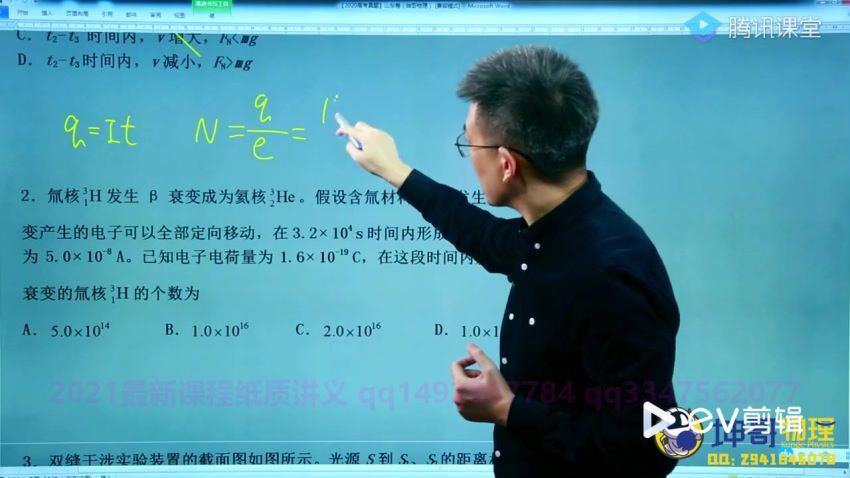 【2020高考真题】山东卷（物理） [兼容模式] - Microsoft Word
腾讯课堂
C. t₂-t₃ 时间内，v 增大，F_N<mg
D. t₂-t₃ 时间内，v 减小，F_N>mg
q=It N=q/e=
2. 氚核³₁H 发生 β 衰变成为氦核³₂He。假设含氚材料
变产生的电子可以全部定向移动，在 3.2×10⁴ s 时间内形成
为 5.0×10⁻⁸ A。已知电子电荷量为 1.6×10⁻¹⁹ C，在这段时间内
衰变的氚核³₁H 的个数为
A. 5.0×10¹⁴ B. 1.0×10¹⁶ C. 2.0×10¹⁶ D. 1.0×1
2021最新课程纸质讲义 qq3347562077
EV剪辑
坤哥物理
Kunge Physics
QQ: 2941646018
3. 双缝干涉实验装置的截面图如图所示。光源 S 到 S₁、S₂ 的距离